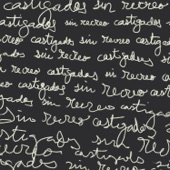 castigados sin recreo
castigados sin recreo
castigados sin recreo
castigados sin recreo
castigados sin recreo casti
castigados sin recreo
sin recreo castigados
castigados sin
recreo castigados
castigados sin